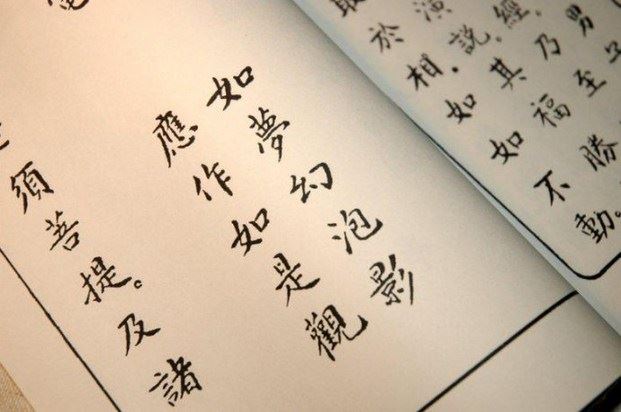 男子
經。乃至
演說。其福勝
取於相。如如不動。
如夢幻泡影
應作如是觀
須菩提。及諸